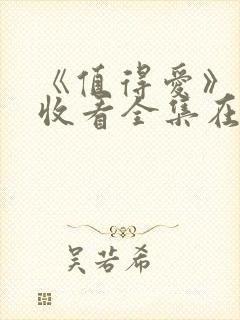 《值得爱》
收看全集在
吴若希